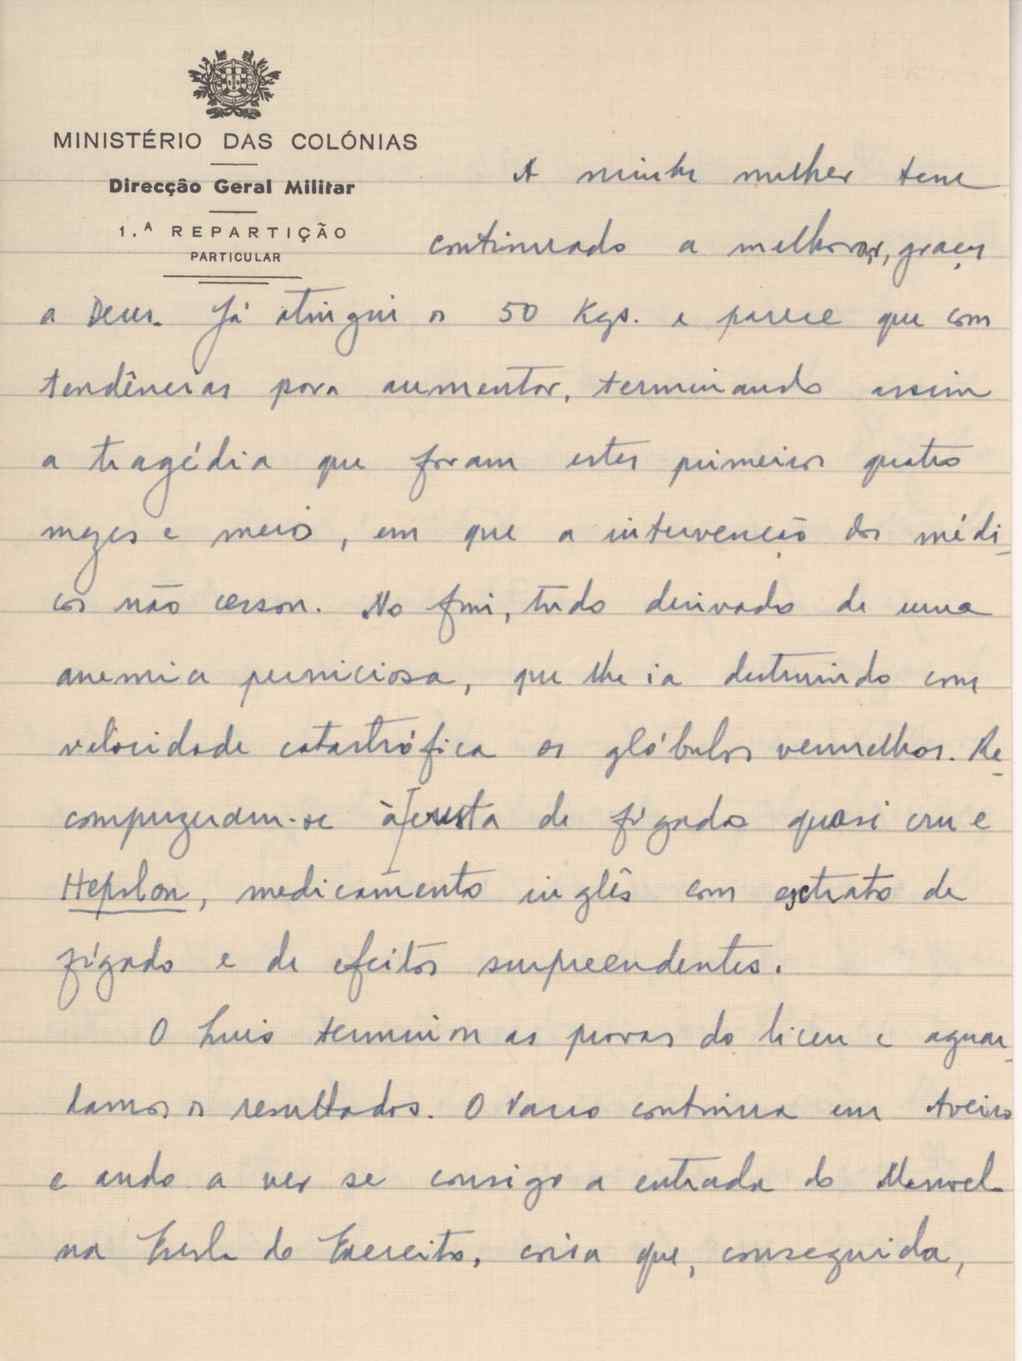 MINISTÉRIO DAS COLÓNIAS
Direcção Geral Militar
1.ª REPARTIÇÃO
PARTICULAR
A minha mulher tem
continuado a melhorar, graças
a Deus. Já atingiu os 50 Kgs. e parece que com
tendências para aumentar, terminando assim
a tragédia que foram estes primeiros quatro
mezes e meio, em que a intervenção dos médi-
cos não cessou. No fim, tudo derivado de uma
anemia perniciosa, que lhe ia destruindo com
velocidade catastrófica os glóbulos vermelhos. Re-
compuzeram-se à custa de fígado quasi cru e
Hepslon, medicamento inglês com extrato de
fígado e de efeitos surpreendentes.
O Luis terminou as provas do liceu e aguar-
damos os resultados. O Vasco continua em Aveiro
e ando a ver se consigo a entrada do Manoel
na Escola do Exercito, coisa que, conseguida,